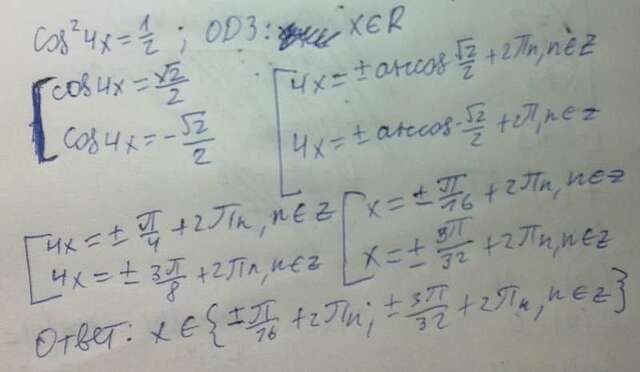 cos²4x = 1/2 ; ОДЗ: x∈R
[ cos4x = √2/2
cos4x = -√2/2
[ 4x = ± arccos √2/2 + 2πn, n∈Z
4x = ± arccos -√2/2 + 2π, n∈Z
[ 4x = ± π/4 + 2πn, n∈Z
4x = ± 3π/8 + 2πn, n∈Z
[ x = ± π/16 + 2πn, n∈Z
x = ± 3π/32 + 2πn, n∈Z
Ответ: x∈{± π/16 + 2πn; ± 3π/32 + 2πn, n∈Z}